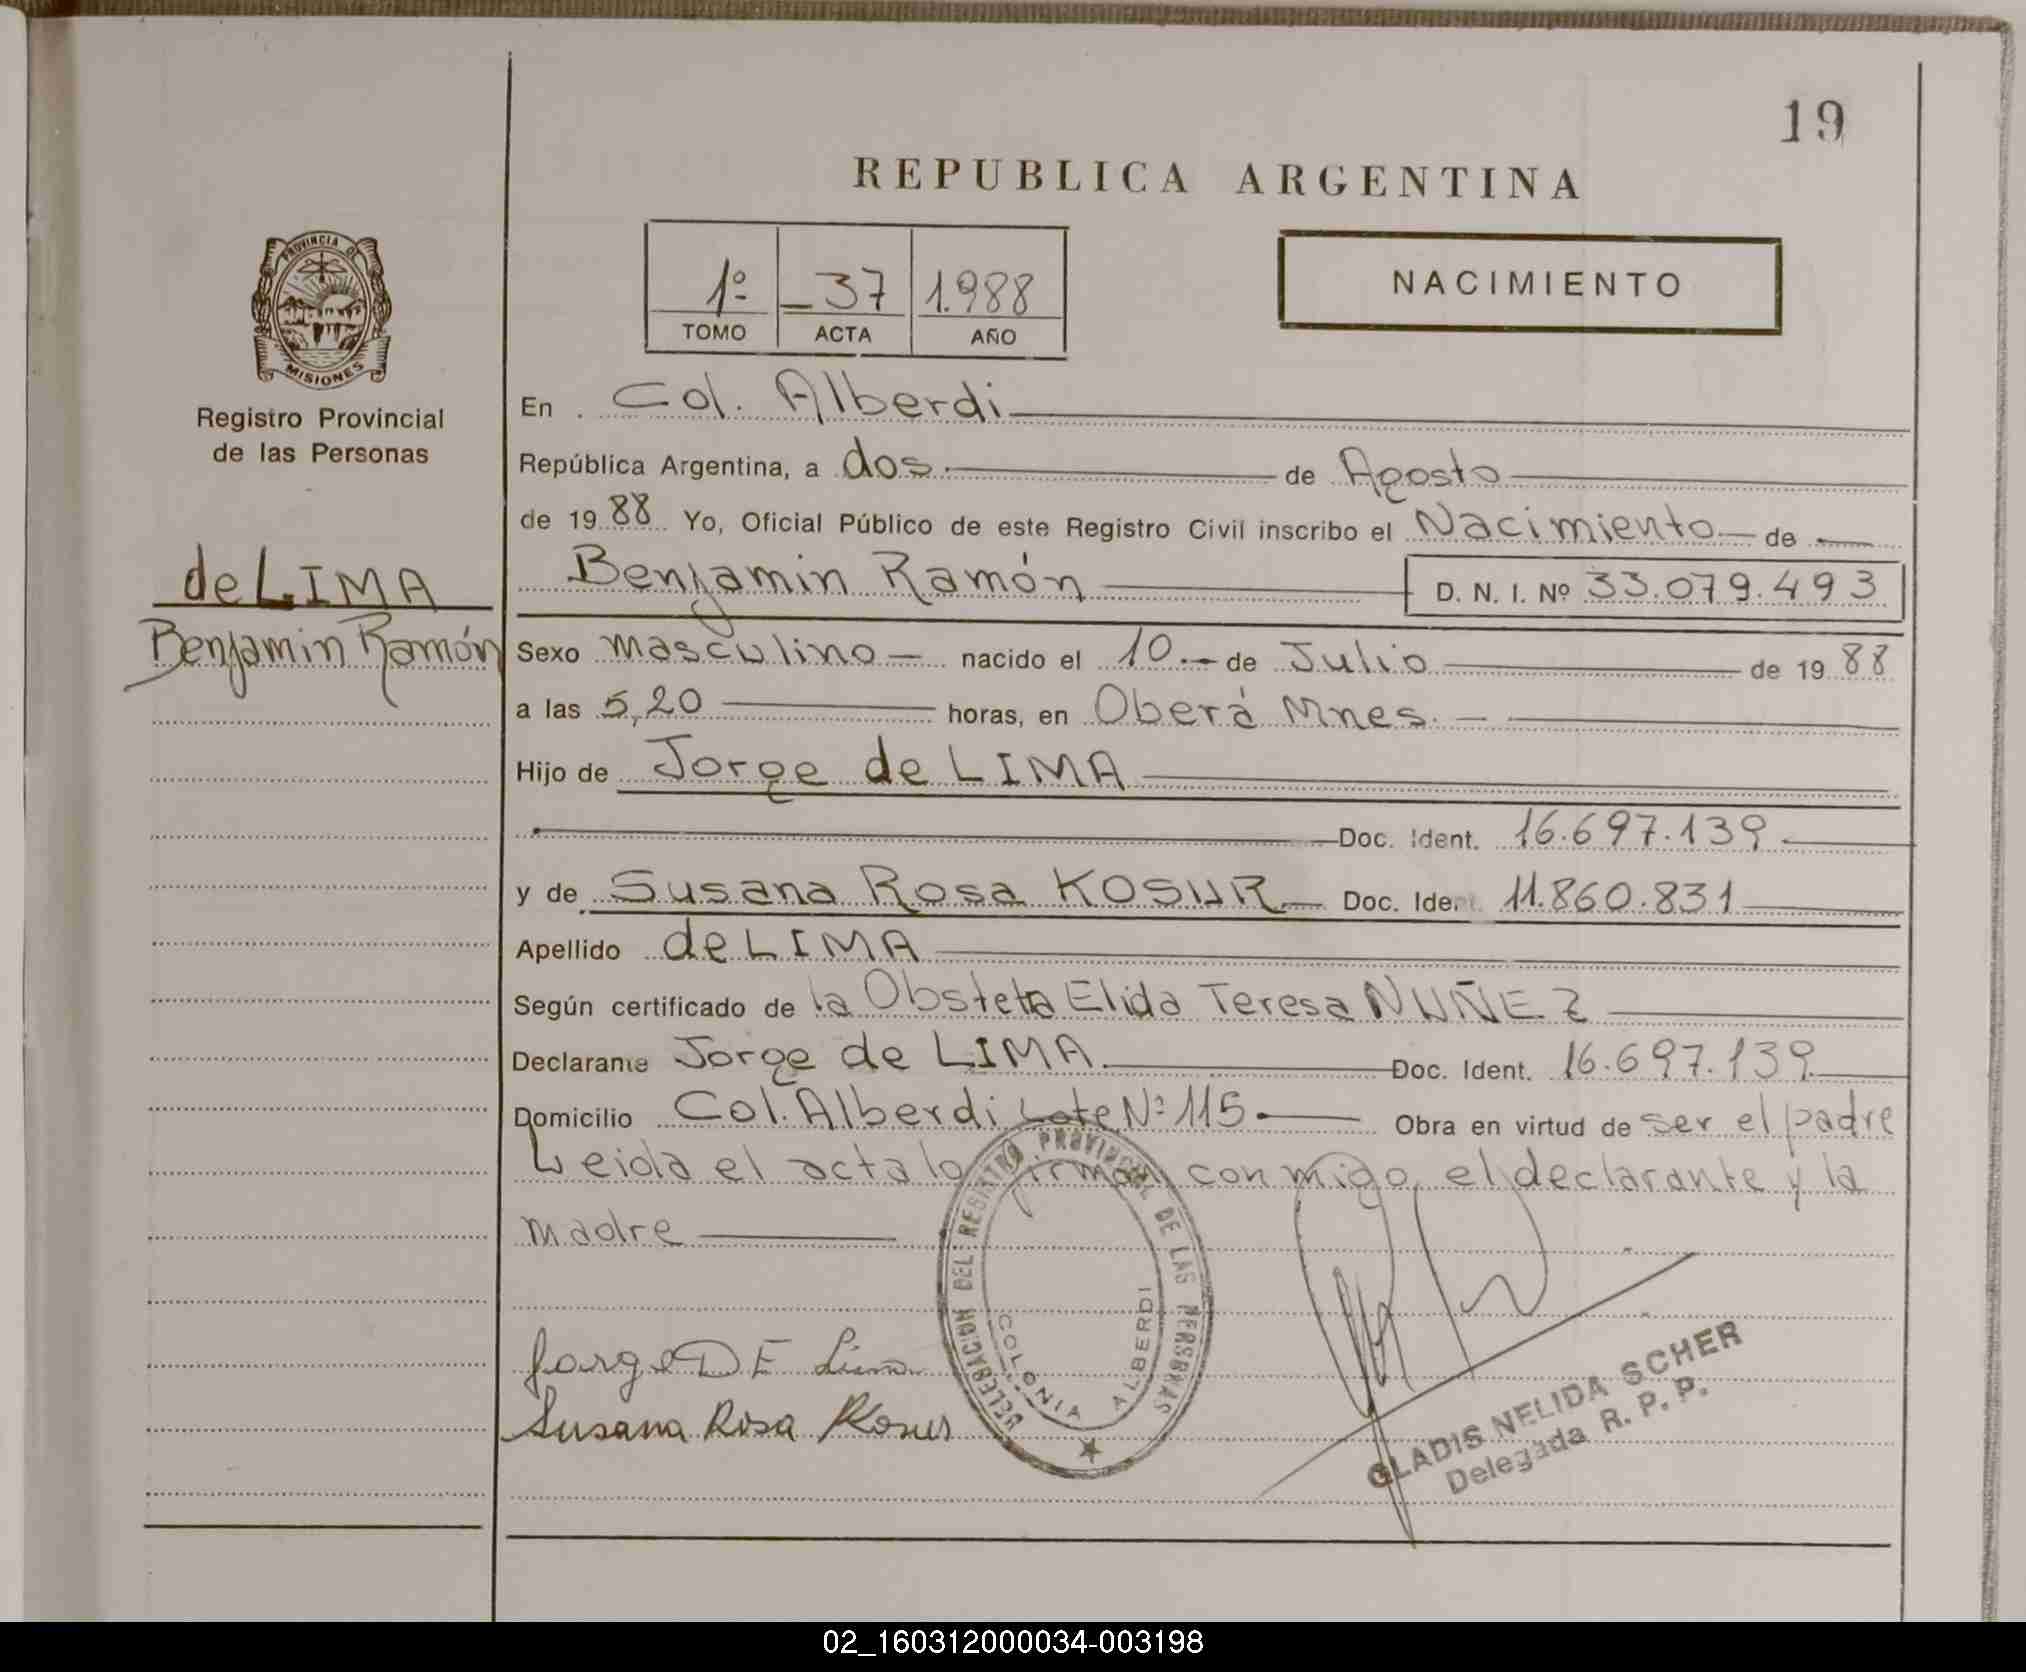 19
REPUBLICA ARGENTINA
1º - 37 1.988
TOMO ACTA AÑO
NACIMIENTO
PROVINCIA DE
MISIONES
Registro Provincial
de las Personas
de LIMA
Benjamin Ramón
En Col. Alberdi
República Argentina, a dos de Agosto
de 1988 Yo, Oficial Público de este Registro Civil inscribo el Nacimiento de
Benjamin Ramón D. N. I. Nº 33.079.493
Sexo masculino nacido el 10 de Julio de 1988
a las 5,20 horas, en Oberá Mnes.
Hijo de Jorge de LIMA
Doc. Ident. 16.697.139
y de Susana Rosa KOSUR Doc. Ident. 11.860.831
Apellido de LIMA
Según certificado de la Obsteta Elida Teresa NUÑEZ
Declarante Jorge de LIMA Doc. Ident. 16.697.139
Domicilio Col. Alberdi Lote Nº 115 Obra en virtud de ser el padre
Leida el acta lo firman conmigo, el declarante y la
madre
DELEGACION DEL REGISTRO PROVINCIAL DE LAS PERSONAS
COLONIA ALBERDI
Jorge DE Lima
Susana Rosa Kosur
GLADIS NELIDA SCHER
Delegada R. P. P.
02_160312000034-003198